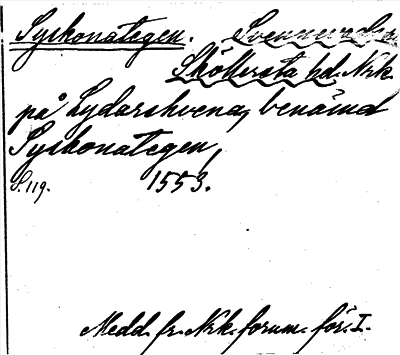 Syskonategen. Svennevads
Sköllersta hd. Nrk.
på Lydarshvena, benämd
Syskonategen,
S. 119. 1553.
Medd. fr. Nrk. fornm. för. I.